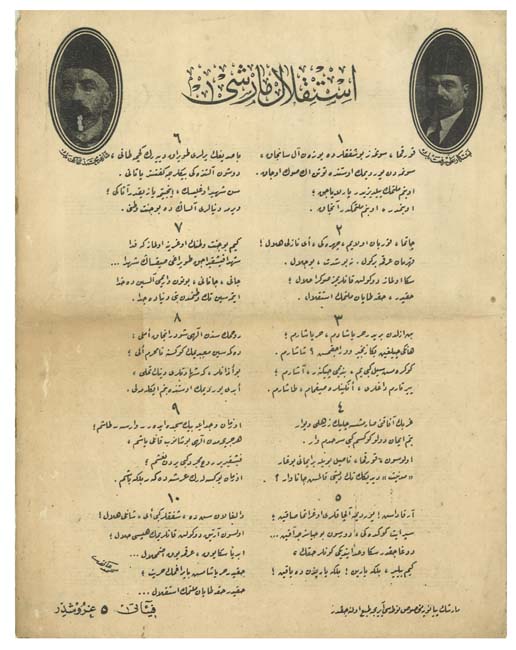 استقلال مارشی
١
قورقما، سونمز بو شفقلرده یوزن آل سانجاق،
سونمه‌دن یوردیمك اوستنده توتن اڭ صوك اوجاق.
او بنم ملتمك ییلدیزیدر پارلایاجق؛
او بنمدر، او بنم ملتمكدر آنجاق.
٢
چاتما، قوربان اولایم، چهره‌ڭی ای نازلی هلال!
قهرمان عرقمه بر كول.. نه بو شدت، بو جلال؟
سڭا اولماز دوكولن قانلریمز صوڭرا حلال؛
حقیدر، حقه طاپان ملتمك استقلال.
٣
بن ازلدن بریدر حر یاشادم، حر یاشارم؛
هانكی چیلغین بڭا زنجیر ووراجقمش؟ شاشارم!
كوكره‌مش سیل كبی یم، بندیمی چیكنر، آشارم؛
ییرتارم داغلری، انكینلره صیغمام، طاشارم.
٤
غربك آفاقنی صارمشسه چلیك زرهلی دیوار
بنم ایمان دولو كوكسم كبی سرحدم وار.
اولوسون، قورقما! ناصیل بویله بر ایمانی بوغار
«مدنیت» دیدیكڭ تك دیشی قالمش جاناوار؟
٥
آرقاداش! یوردیمه آلچاقلری اوغراتما صاقین؛
سپر ایت كوكده‌ڭی، دورسون بو حیاسزجه آقین؛
دوغاجقدر سڭا وعد ایتدیكی كونلر حقڭ
كیم بیلیر، بلكه یارین! بلكه یاریندن ده یاقین!
٦
باصدیغڭ یرلری طوپراق دییه‌رك كچمه طانی،
دوشون آلتنده‌كی بیكلرجه كفنسز یاتانی.
سن شهید اوغلیسڭ، اینجیتمه یازیقدر آتاكی؛
ویرمه دنیالری آلسه‌ڭ ده بو جنت وطنی.
٧
كیم بو جنت وطنڭ اوغرینه اولماز كه فدا
شهدا فیشقیراجق طوپراغی صیقسه‌ڭ شهدا...
جانی، جانانی، بوتون واریمی آلسین ده خدا
ایتمه‌سین تك وطنمدن بنی دنیاده جدا.
٨
روحمك سندن الهی شودر آنجاق املی:
دكمه‌سین معبدیمك كوكسنه نامحرم الی؛
بو اذانلر، كه شهادتلری دینڭ تملی،
ابدی یوردیمك اوستنده بنم ایكله‌ملی.
٩
او زمان وجد ایله بیك سجده ایدر وارسه طاشم؛
هر جریحه‌مدن الهی بوشانوب قانلی یاشم،
فیشقیرر روح مجرد كبی یردن نعشم؛
او زمان یوكسه‌له‌رك عرشه دكر بلكه باشم.
١٠
دالغالان سن ده، شفقلر كبی ای شانلی هلال!
اولسون آرتیق دوكولن قانلریمڭ هپسی حلال؛
ابدیا سڭا یوق، عرقمه یوق اضمحلال.
حقیدر حر یاشامش بایراغمك حریت؛
حقیدر حقه طاپان ملتمك استقلال...
فیأتی ٥ غروشدر